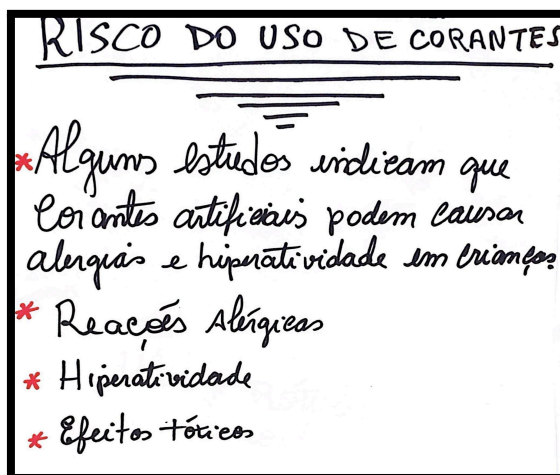 RISCO DO USO DE CORANTES
* Alguns estudos indicam que
corantes artificiais podem causar
alergias e hiperatividade em crianças
* Reações Alérgicas
* Hiperatividade
* Efeitos tóxicos